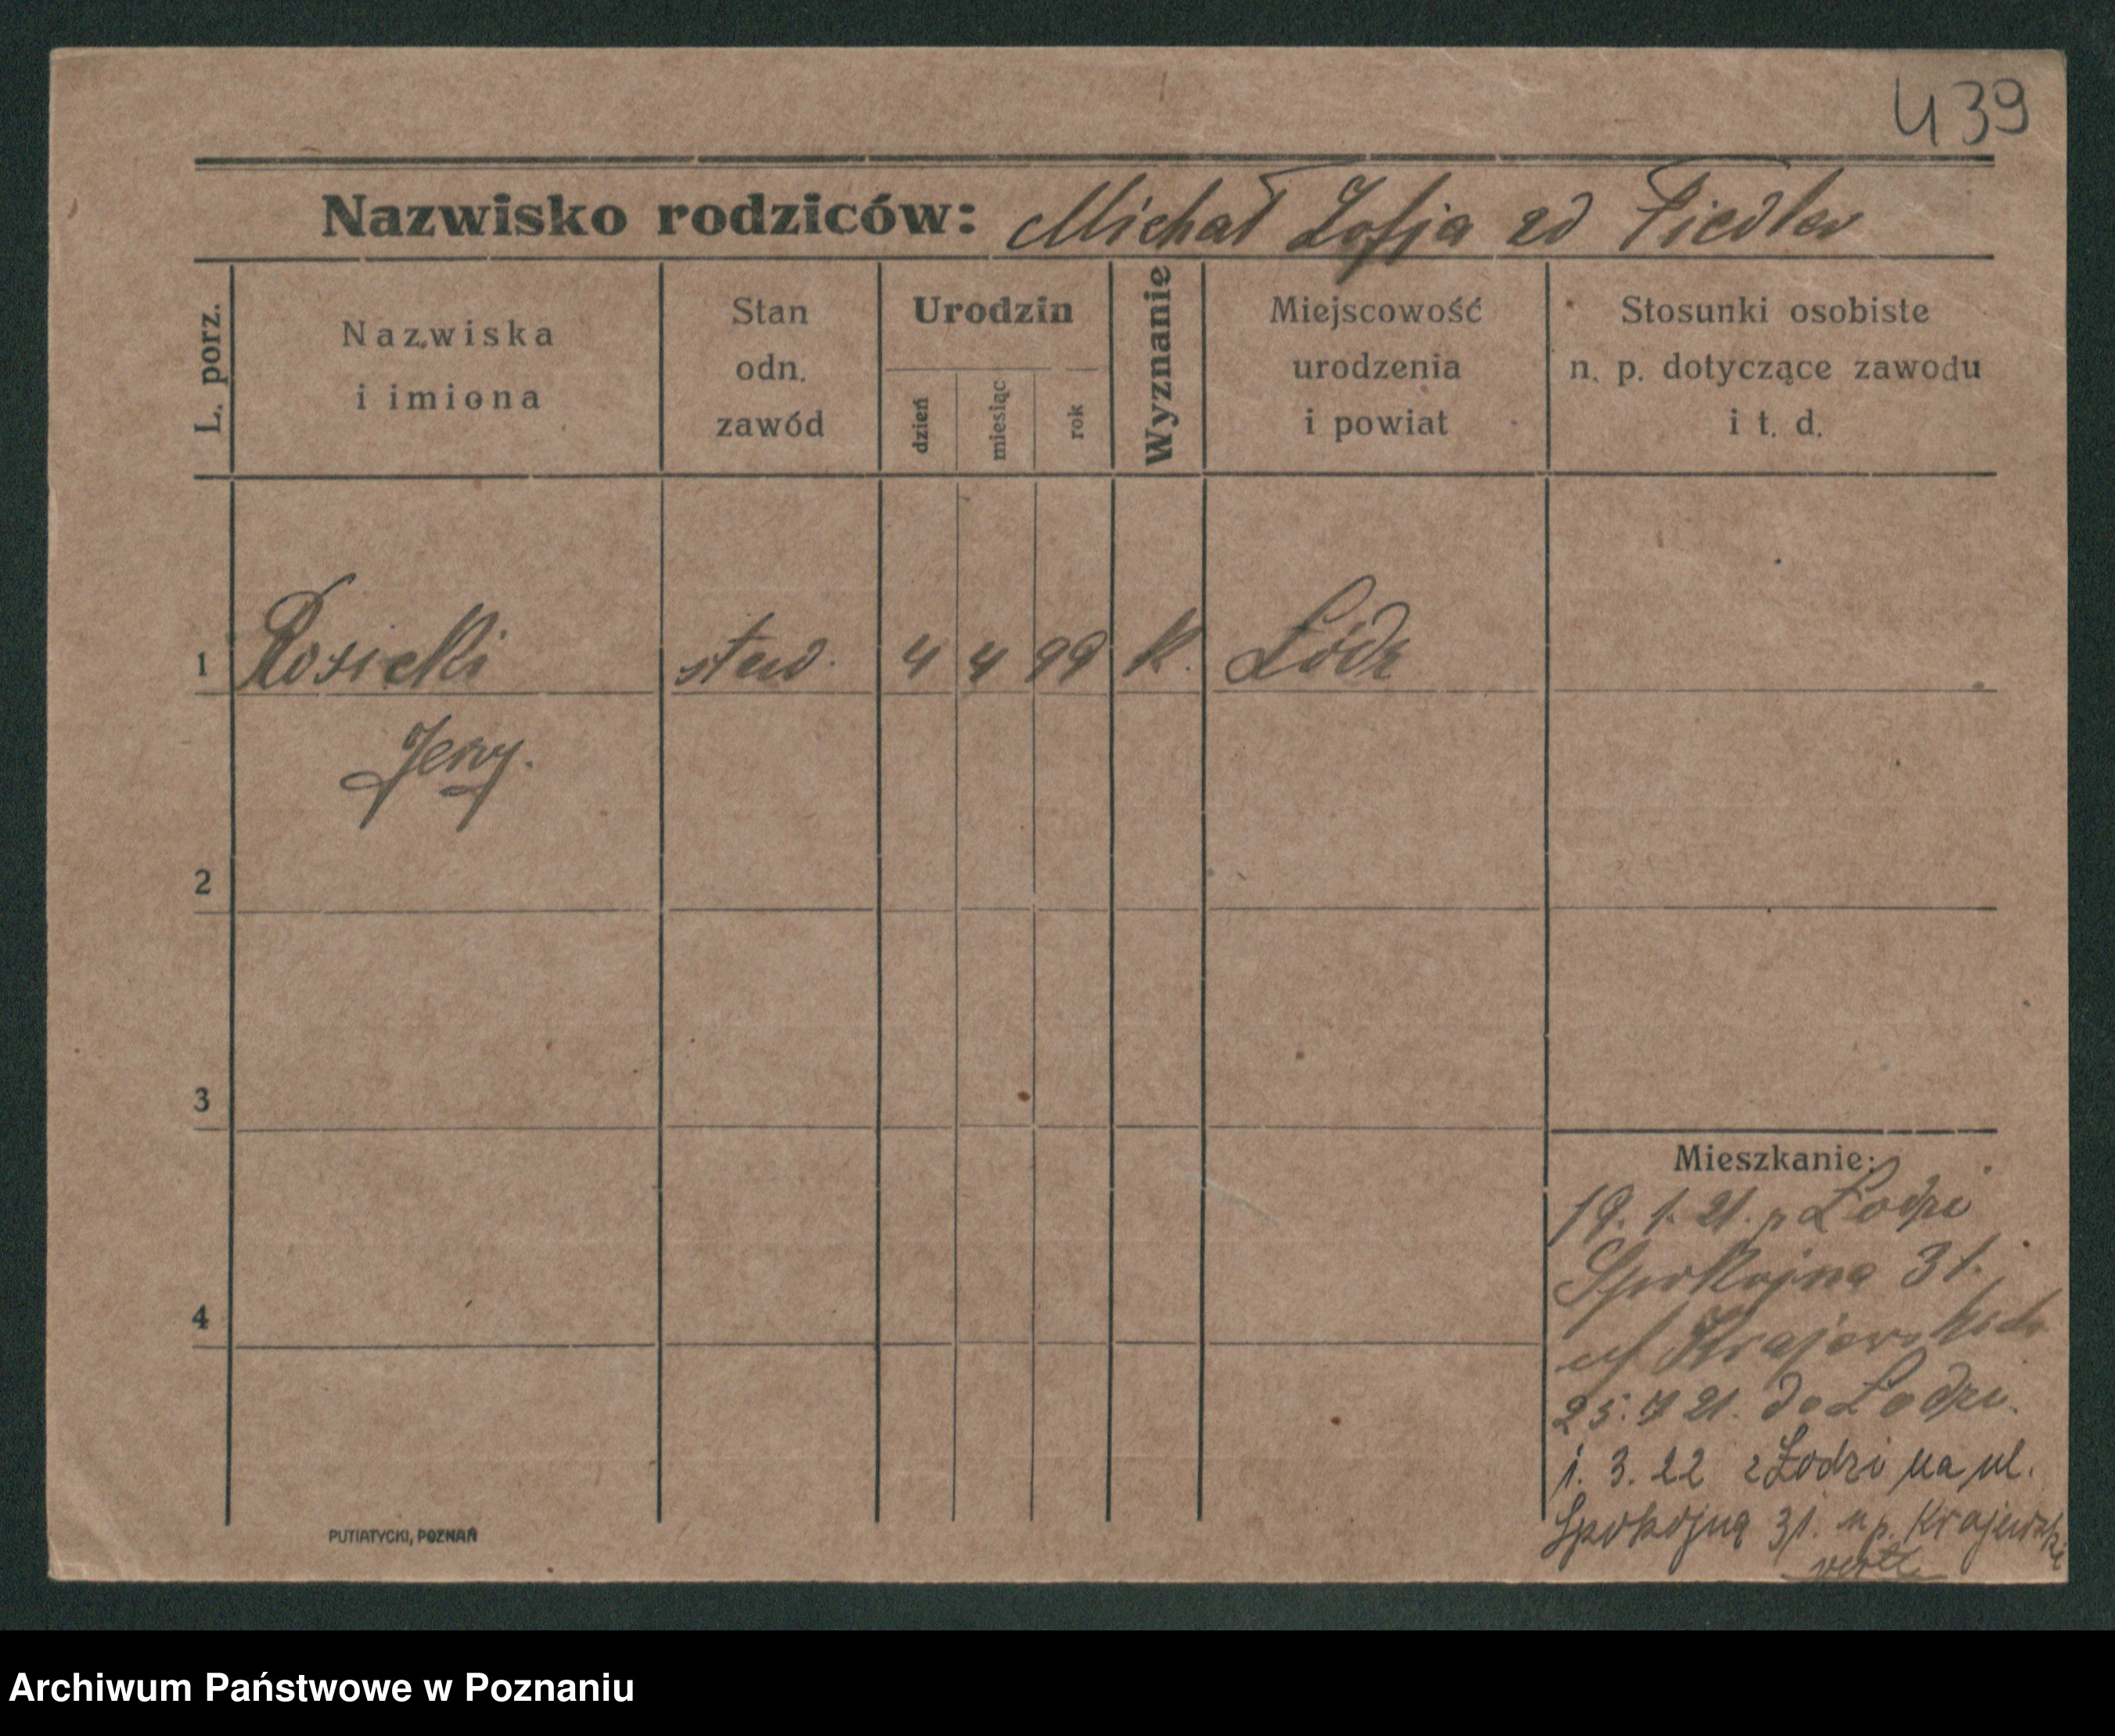 439
Nazwisko rodziców: Michał Zofja zd Fiedler
L. porz.
Nazwiska
i imiona
Stan
odn.
zawód
Urodzin
dzień
miesiąc
rok
Wyznanie
Miejscowość
urodzenia
i powiat
Stosunki osobiste
n. p. dotyczące zawodu
i t. d.
1 Rosicki 4 4 99 k. Łódz
Jerzy.
2
3
4
Mieszkanie:
19. 1. 21. z Łodzi
Spokojna 31.
25. 7 21. do Łodzi.
1. 3. 22 z Łodzi na ul.
Spokojną 31. u p. Krajewski
PUTIATYCKI, POZNAŃ
Archiwum Państwowe w Poznaniu